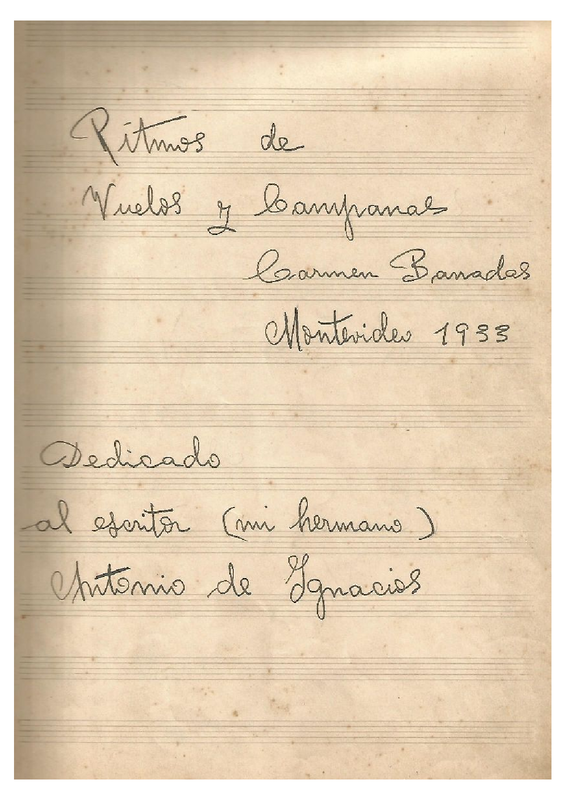 Ritmos de
Vuelos y Campanas
Carmen Barradas
Montevideo 1933
Dedicado
al escritor (mi hermano)
Antonio de Ignacios